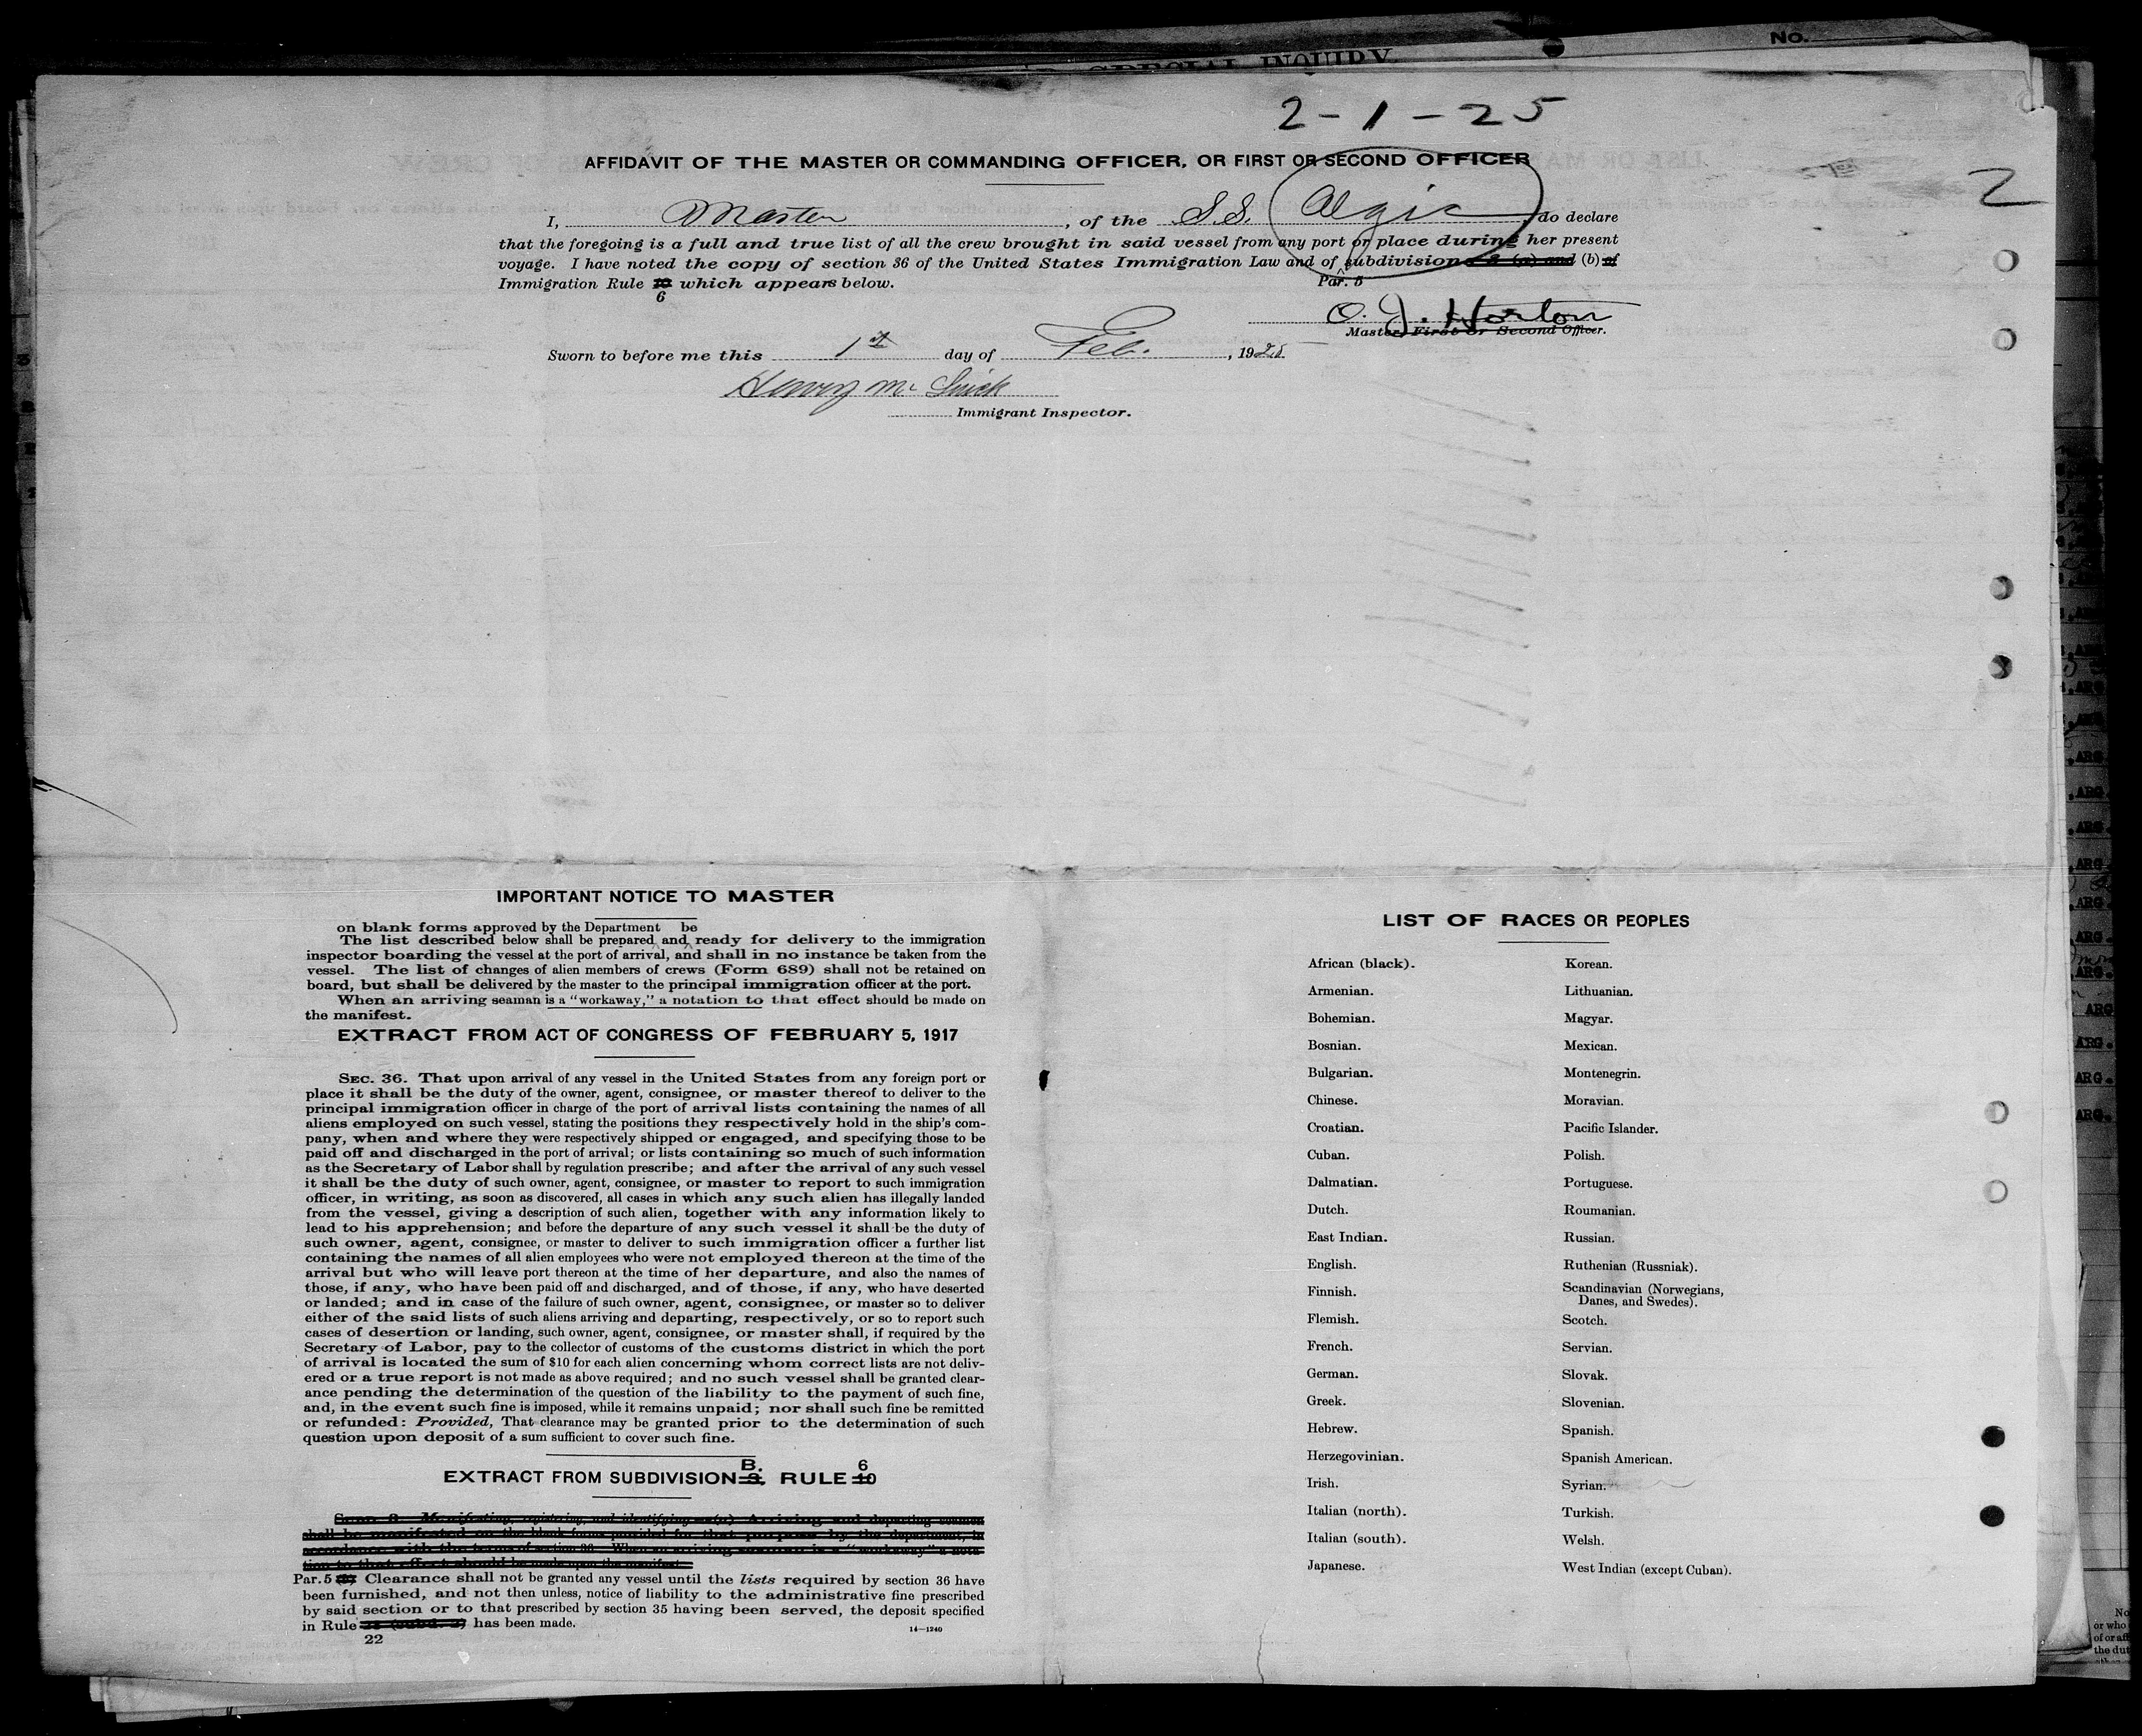 SPECIAL INQUIRY.
No.
2-1-25
AFFIDAVIT OF THE MASTER OR COMMANDING OFFICER, OR FIRST OR SECOND OFFICER
2
I, Master, of the S.S. Algic, do declare
that the foregoing is a full and true list of all the crew brought in said vessel from any port or place during her present
voyage. I have noted the copy of section 36 of the United States Immigration Law and of subdivision (b) of
Par. 5
Immigration Rule 10 which appears below.
6
O. J. Horton
Master, First or Second Officer.
Sworn to before me this 1st day of Feb., 1925
Henry
Immigrant Inspector.
IMPORTANT NOTICE TO MASTER
on blank forms approved by the Department be
The list described below shall be prepared and ready for delivery to the immigration
inspector boarding the vessel at the port of arrival, and shall in no instance be taken from the
vessel. The list of changes of alien members of crews (Form 689) shall not be retained on
board, but shall be delivered by the master to the principal immigration officer at the port.
When an arriving seaman is a "workaway," a notation to that effect should be made on
the manifest.
EXTRACT FROM ACT OF CONGRESS OF FEBRUARY 5, 1917
SEC. 36. That upon arrival of any vessel in the United States from any foreign port or
place it shall be the duty of the owner, agent, consignee, or master thereof to deliver to the
principal immigration officer in charge of the port of arrival lists containing the names of all
aliens employed on such vessel, stating the positions they respectively hold in the ship's com-
pany, when and where they were respectively shipped or engaged, and specifying those to be
paid off and discharged in the port of arrival; or lists containing so much of such information
as the Secretary of Labor shall by regulation prescribe; and after the arrival of any such vessel
it shall be the duty of such owner, agent, consignee, or master to report to such immigration
officer, in writing, as soon as discovered, all cases in which any such alien has illegally landed
from the vessel, giving a description of such alien, together with any information likely to
lead to his apprehension; and before the departure of any such vessel it shall be the duty of
such owner, agent, consignee, or master to deliver to such immigration officer a further list
containing the names of all alien employees who were not employed thereon at the time of the
arrival but who will leave port thereon at the time of her departure, and also the names of
those, if any, who have been paid off and discharged, and of those, if any, who have deserted
or landed; and in case of the failure of such owner, agent, consignee, or master so to deliver
either of the said lists of such aliens arriving and departing, respectively, or so to report such
cases of desertion or landing, such owner, agent, consignee, or master shall, if required by the
Secretary of Labor, pay to the collector of customs of the customs district in which the port
of arrival is located the sum of $10 for each alien concerning whom correct lists are not deliv-
ered or a true report is not made as above required; and no such vessel shall be granted clear-
ance pending the determination of the question of the liability to the payment of such fine,
and, in the event such fine is imposed, while it remains unpaid; nor shall such fine be remitted
or refunded: Provided, That clearance may be granted prior to the determination of such
question upon deposit of a sum sufficient to cover such fine.
B. 6
EXTRACT FROM SUBDIVISION 3. RULE 10
SUBD 3. Manifesting, registering, and identifying.—(a) Arriving and departing seamen
shall be manifested on the blank forms provided for that purpose by the department, in
accordance with the terms of section 36. When an arriving seaman is a "workaway" a nota-
tion to that effect should be made upon the manifest.
Par. 5 (b) Clearance shall not be granted any vessel until the lists required by section 36 have
been furnished, and not then unless, notice of liability to the administrative fine prescribed
by said section or to that prescribed by section 35 having been served, the deposit specified
in Rule has been made.
22
14—1240
LIST OF RACES OR PEOPLES
African (black).
Armenian.
Bohemian.
Bosnian.
Bulgarian.
Chinese.
Croatian.
Cuban.
Dalmatian.
Dutch.
East Indian.
English.
Finnish.
Flemish.
French.
German.
Greek.
Hebrew.
Herzegovinian.
Irish.
Italian (north).
Italian (south).
Japanese.
Korean.
Lithuanian.
Magyar.
Mexican.
Montenegrin.
Moravian.
Pacific Islander.
Polish.
Portuguese.
Roumanian.
Russian.
Ruthenian (Russniak).
Scandinavian (Norwegians,
Danes, and Swedes).
Scotch.
Servian.
Slovak.
Slovenian.
Spanish.
Spanish American.
Syrian.
Turkish.
Welsh.
West Indian (except Cuban).